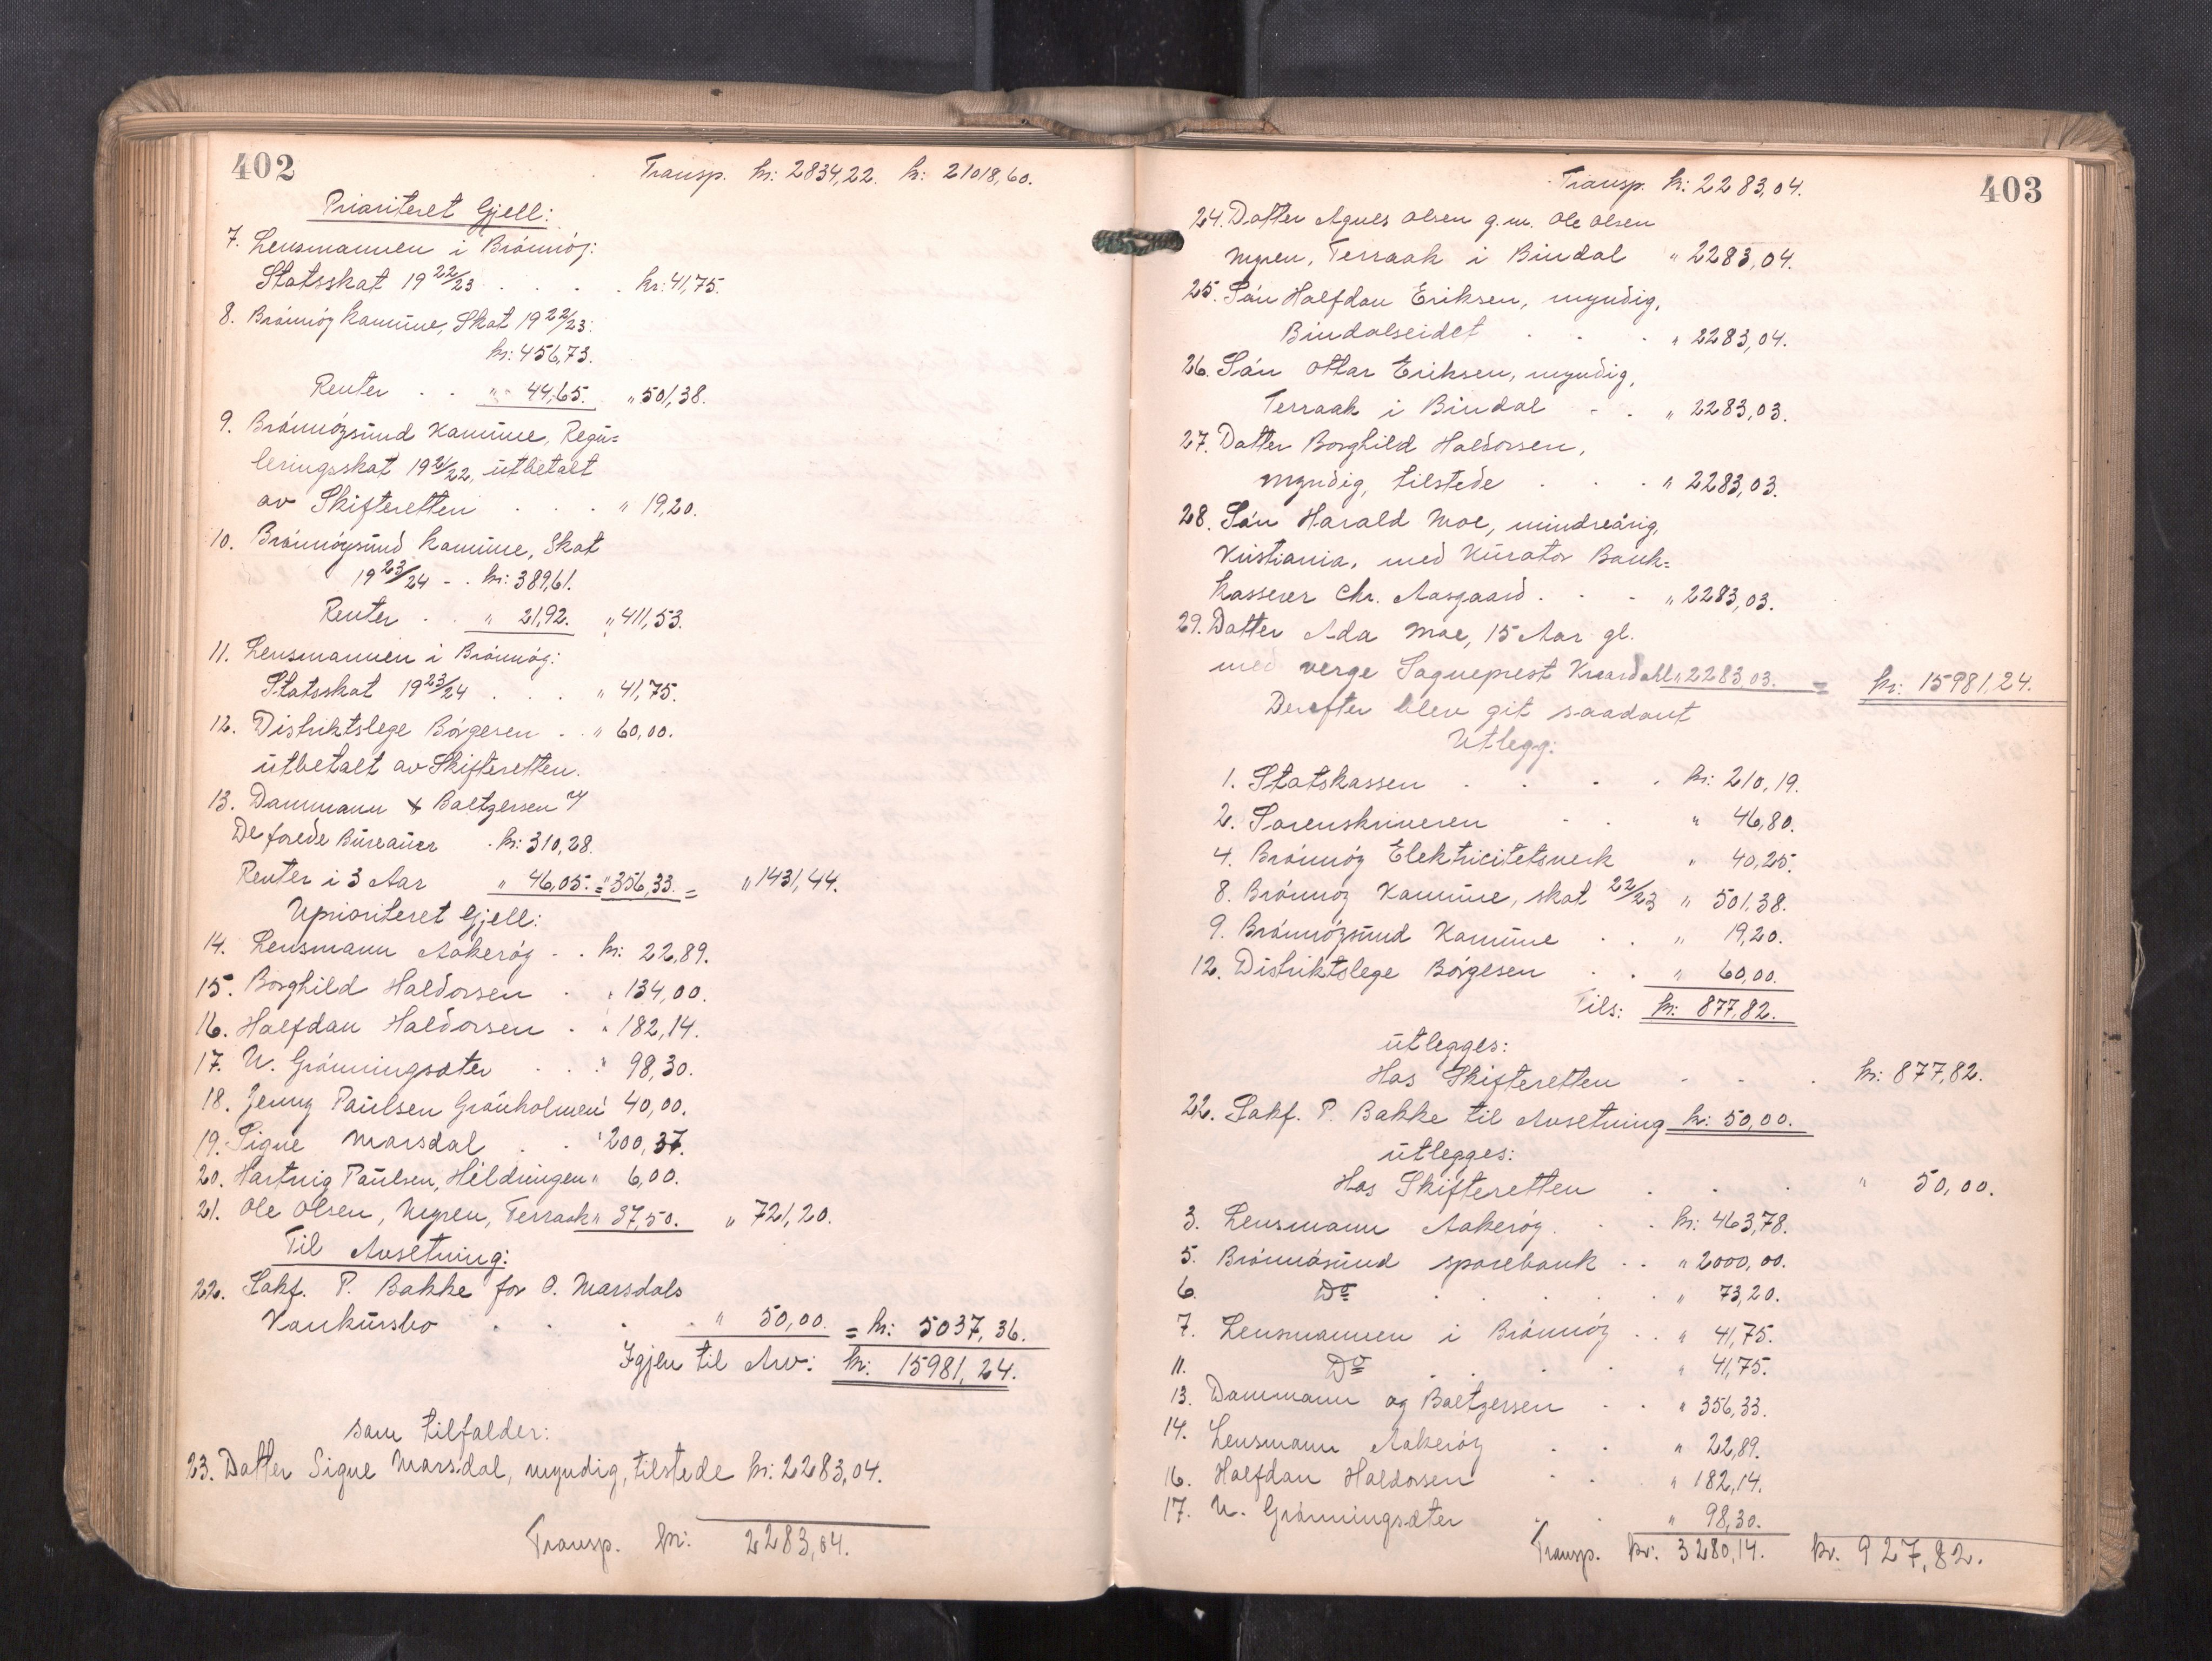 402
Transp. kr: 2834,22. kr: 21018,60.
Prioriteret Gjell:
7. Lensmannen i Brönnöy:
Statsskat 1922/23 . . . . kr: 41,75.
8. Brönnöy Kommune, Skat 1922/23:
kr: 456,73.
Renter . . " 44,65. " 501,38.
9. Brönnöysund Kommune, Regu=
leringsskat 1921/22, utbetalt
av Skifteretten . . . " 19,20.
10. Brönnöysund Kommune, Skat
1923/24 - . kr: 389,61.
Renter . . " 21,92. " 411,53.
11. Lensmannen i Brönnöy:
Statsskat 1923/24 . . . " 41,75.
12. Distriktslege Börgesen . . " 60,00.
utbetalt av Skifteretten.
13. Dammann & Baltzersen
De forede Bureauer . kr: 310,28.
Renter i 3 Aar " 46,05. = " 356,33. = " 1431,44.
Uprioriteret Gjell:
14. Lensmann Aakeröy - . kr: 22,89.
15. Borghild Haldorsen . " 134,00.
16. Halfdan Haldorsen . " 182,14.
17. N. Grönningsæter . . " 98,30.
18. Jenny Paulsen Grönholmen " 40,00.
19. Signe Marsdal . . " 200,37.
20. Hartvig Paulsen, Hildringen " 6,00.
21. Ole Olsen, Myren, Terraak " 37,50. " 721,20.
Til Avsetning:
22. Sakf. P. Bakke for O. Marsdals
Konkursbo . . . . " 50,00. = kr: 5037,36.
Igjen til Arv: kr: 15981,24.
som tilfalder:
23. Datter Signe Marsdal, myndig, tilstede kr: 2283,04.
Transp. kr: 2283,04.
403
Transp. kr: 2283,04.
24. Datter Agnes Olsen g.m. Ole Olsen
Myren, Terraak i Bindal " 2283,04.
25. Sön Halfdan Eriksen, myndig,
Bindalseidet . . . " 2283,04.
26. Sön Ottar Eriksen, myndig,
Terraak i Bindal - . " 2283,03.
27. Datter Borghild Haldorsen,
myndig, tilstede . . . " 2283,03.
28. Sön Harald Moe, mindreårig,
Kristiania, med Kurator Bank=
kasserer Chr. Aasgaard . . - " 2283,03.
29. Datter Ada Moe, 15 Aar gl.
med verge Sogneprest Kvardahl " 2283,03. = kr: 15981,24.
Derefter blev git saadant
Utlegg:
1. Statskassen . . . . kr: 210,19.
2. Sorenskriveren . . " 46,80.
4. Brönnöy Elektricitetsverk " 40,25.
8. Brönnöy Kommune, skat 22/23 " 501,38.
9. Brönnöysund Kommune . . " 19,20.
12. Distriktslege Börgesen . . " 60,00.
Tils: kr: 877,82.
utlegges:
Hos Skifteretten - . . kr: 877,82.
22. Sakf. P. Bakke til Avsetning kr: 50,00.
utlegges:
Hos Skifteretten . . . " 50,00.
3. Lensmann Aakeröy . . . kr: 463,78.
5. Brönnösund sparebank . . " 2000,00.
6. Do . . . . . " 73,20.
7. Lensmannen i Brönnöy . . " 41,75.
11. Do . . . " 41,75.
13. Dammann og Baltzersen . . " 356,33.
14. Lensmann Aakeröy . . " 22,89.
16. Halfdan Haldorsen . . " 182,14.
17. N. Grönningsæter . . " 98,30.
Transp. kr. 3280,14. kr. 927,82.